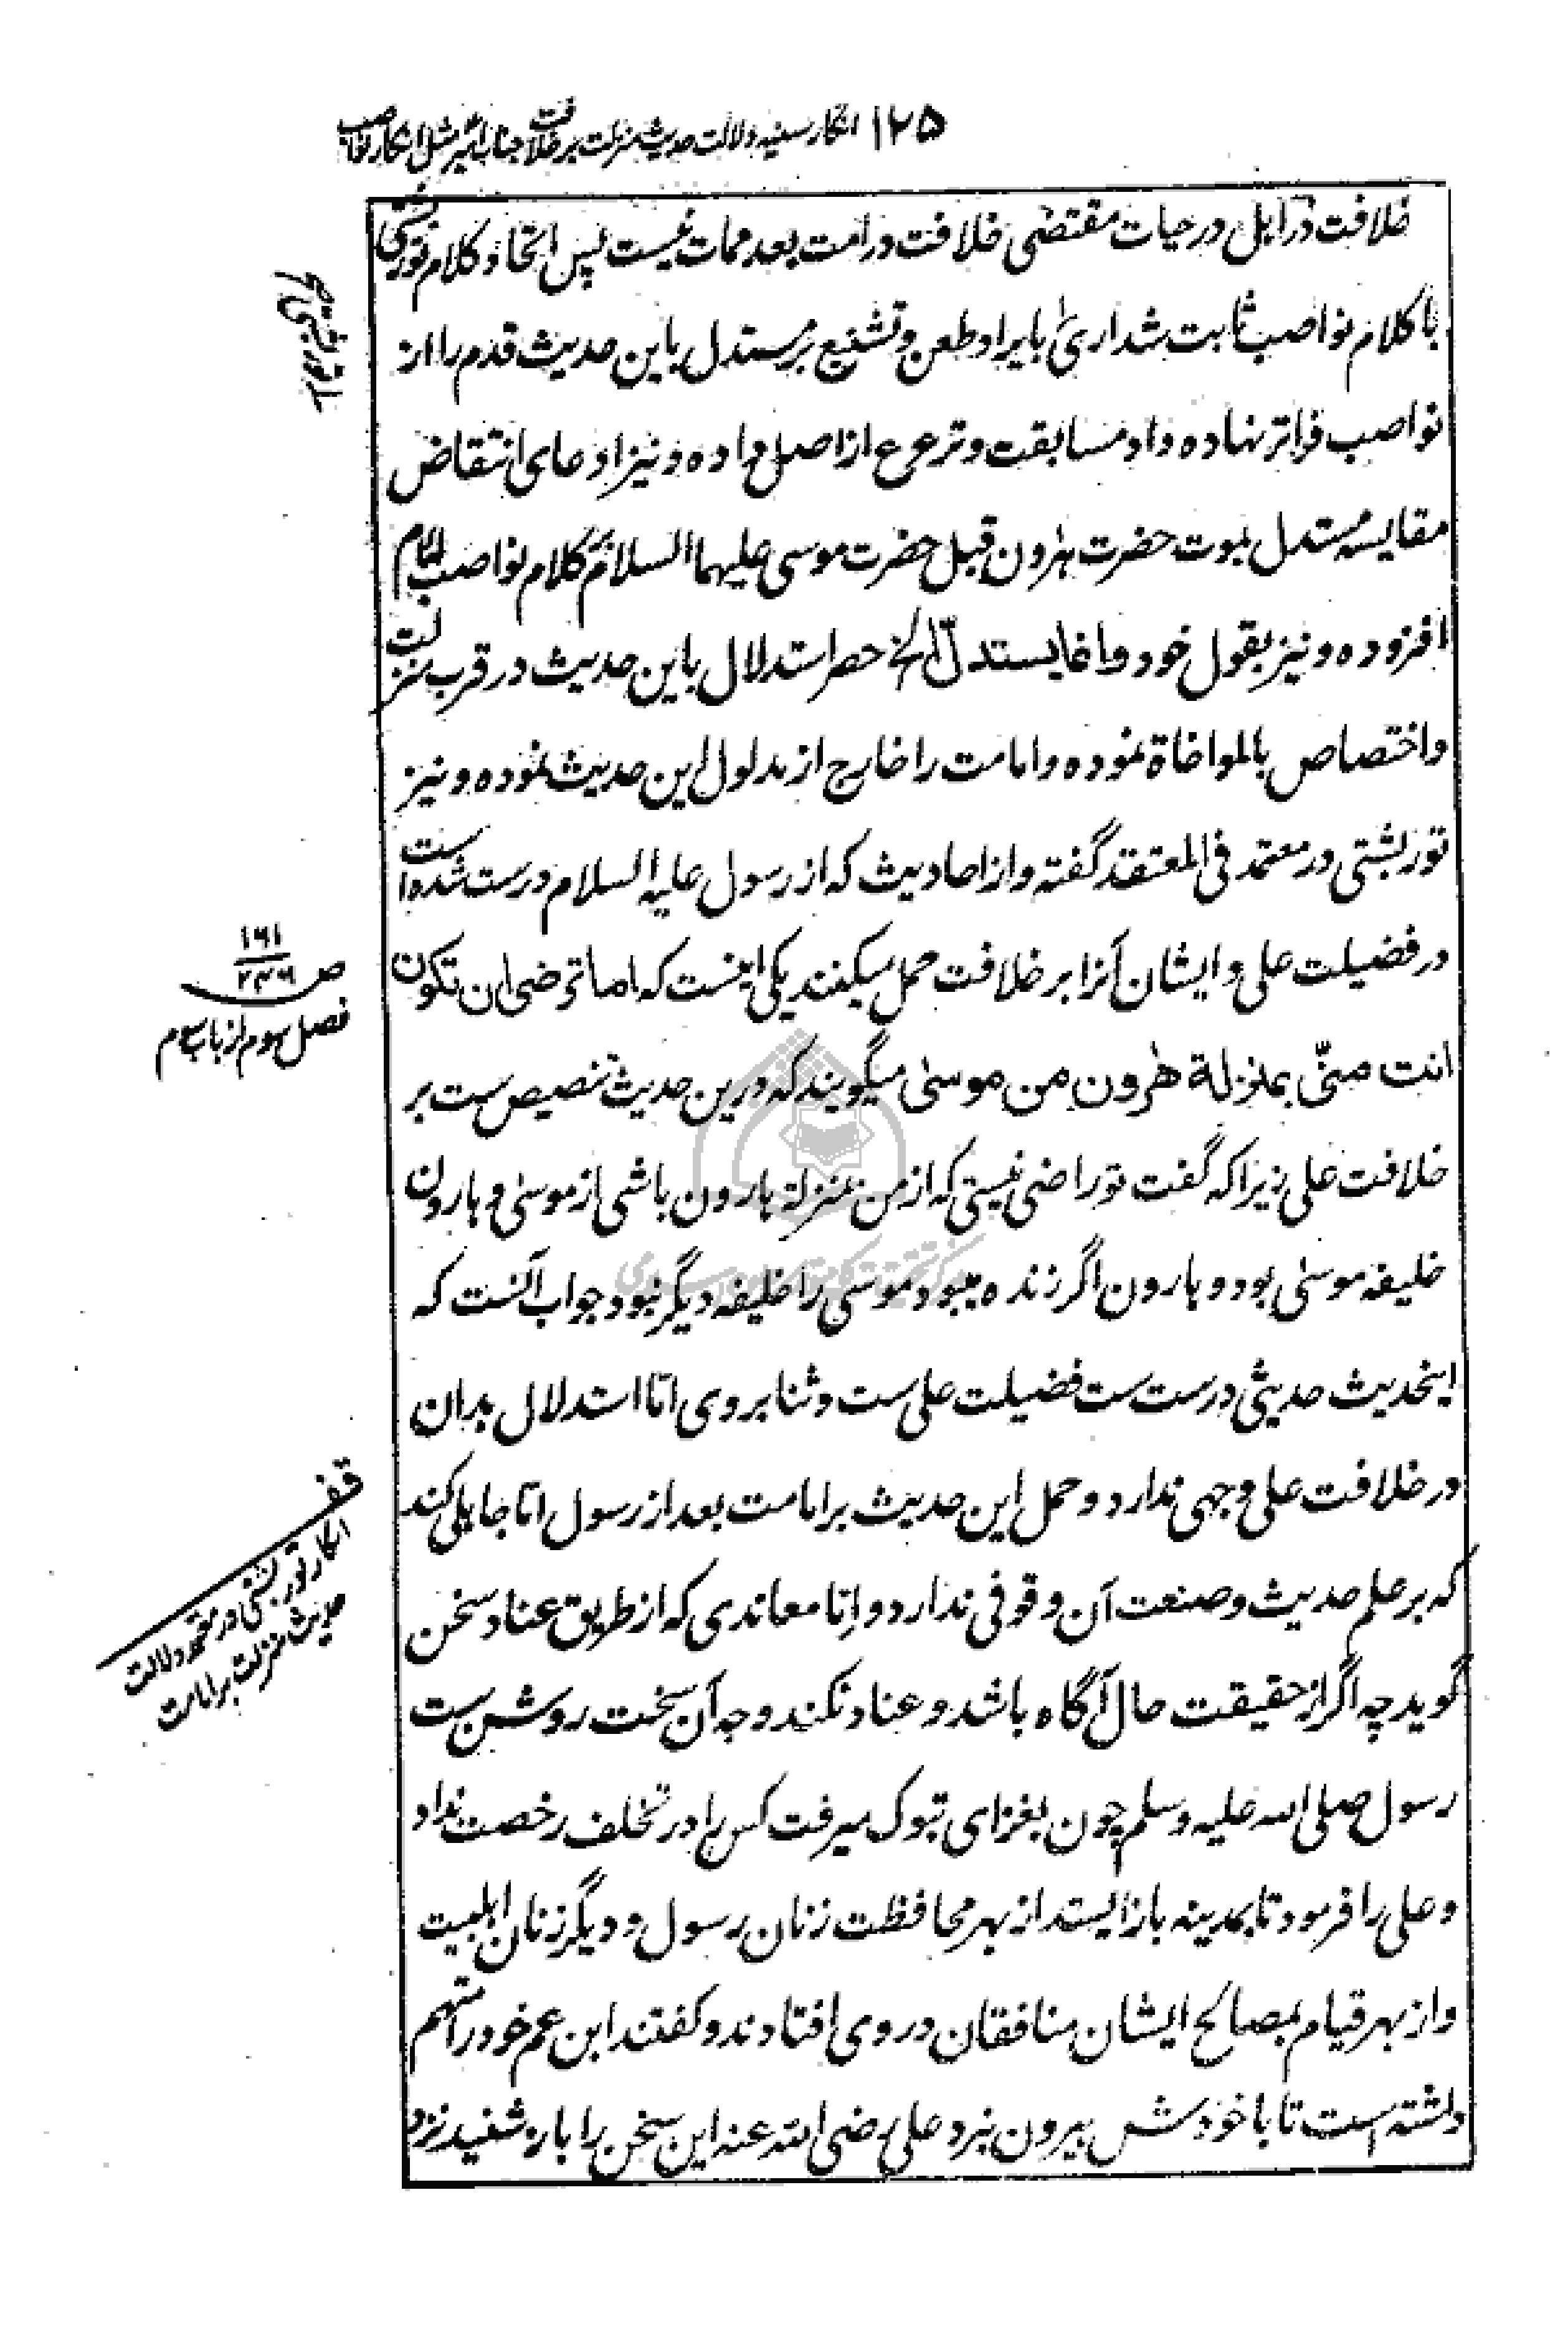 ۱۲۵ انکار سنیه دلالت حدیث منزلت بر خلافت جناب امیر مثل انکار نواصب
خلافت در اہل در حیات مقتضی خلافت در امت بعد ممات نیست پس اتحاد کلام تورپشتی
با کلام نواصب ثابت شد اری بایراد طعن و تشنیع بر مستدل باین حدیث قدم را از
نواصب فراتر نهاده داد مسابقت و ترعرع از اصل داده و نیز ادعای انتقاض
مقایسه مستدل بموت حضرت هرون قبل حضرت موسی علیهما السلام بر کلام نواصب لئام
افزوده و نیز بقول خود وانما یستدل الخ حصر استدلال باین حدیث در قرب منزلت
واختصاص بالمواخاة نموده و امامت را خارج از مدلول این حدیث نموده و نیز
تورپشتی در معتمد فی المعتقد گفته و از احادیث که از رسول علیه السلام درست شده است
در فضیلت علی و ایشان آنرا بر خلافت حمل میکنند یکی اینست که اما ترضی ان تکون
انت منّی بمنزلة هرون من موسیٰ میگویند که درین حدیث تنصیص ست بر
خلافت علی زیرا که گفت تو راضی نیستی که از من بمنزلۀ ہارون باشی از موسیٰ و ہارون
خلیفه موسیٰ بود و ہارون اگر زنده میبود موسی را خلیفه دیگر نبود جواب آنست که
اینحدیث حدیثی درست ست فضیلت علی ست و ثنا بر وی اما استدلال بدان
در خلافت علی وجهی ندارد و حمل این حدیث بر امامت بعد از رسول اما جاہلی کند
که بر علم حدیث و صنعت آن وقوفی ندارد و اِمّا معاندی که از طریق عناد سخن
گوید چه اگر از حقیقت حال آگاه باشد و عناد نکند وجه آن سخت روشن ست
رسول صلی الله علیه وسلم چون بغزای تبوک میرفت کس را در تخلف رخصت نداد
و علی را فرمود تا بمدینه باز ایستد از بهر محافظت زنان رسول و دیگر زنان اہلبیت
و از بهر قیام بمصالح ایشان منافقان در وی افتادند و گفتند ابن عم خود را متهم
داشته است تا با خودش بیرون نبرد علی رضی الله عنه این سخن را باره شنید نزد
۱۶۱
ص ۲۳۶
فصل سوم از باب سوم
قف
انکار تورپشتی در معتمد دلالت
حدیث منزلت بر امامت